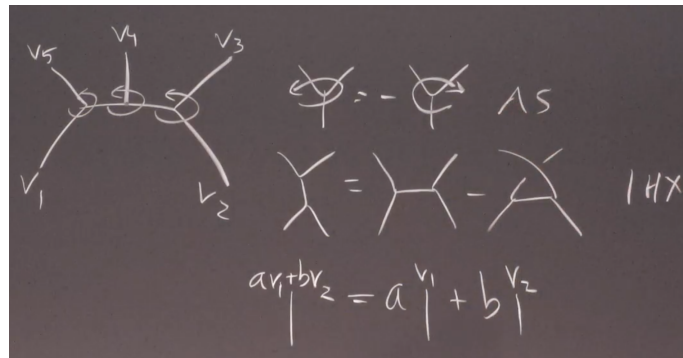 v5 v4 v3
v1 v2
= - AS
= - IHX
av1+bv2 = a v1 + b v2